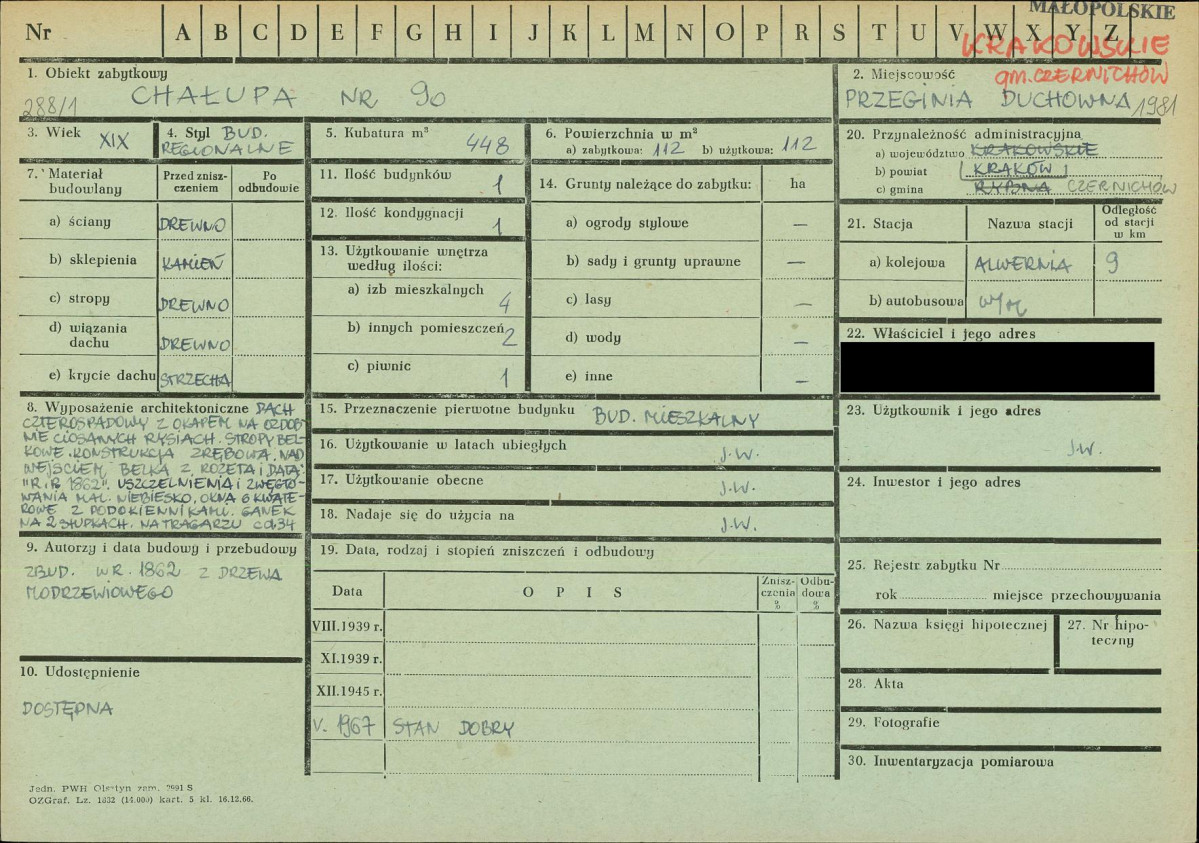 MAŁOPOLSKIE
Nr A B C D E F G H I J K L M N O P R S T U V W X Y Z
KRAKOWSKIE
gm. CZERNICHÓW
1. Obiekt zabytkowy
288/1 CHAŁUPA NR 90
2. Miejscowość
PRZEGINIA DUCHOWNA 1981
3. Wiek XIX
4. Styl BUD.
REGIONALNE
5. Kubatura m³
448
6. Powierzchnia w m²
a) zabytkowa: 112 b) użytkowa: 112
20. Przynależność administracyjna
a) województwo KRAKOWSKIE
b) powiat KRAKÓW
c) gmina RYBNA CZERNICHÓW
7. Materiał
budowlany
Przed znisz-
czeniem
Po
odbudowie
a) ściany DREWNO
b) sklepienia KAMIEŃ
c) stropy DREWNO
d) wiązania
dachu DREWNO
e) krycie dachu STRZECHA
11. Ilość budynków 1
12. Ilość kondygnacji 1
13. Użytkowanie wnętrza
według ilości:
a) izb mieszkalnych 4
b) innych pomieszczeń 2
c) piwnic 1
14. Grunty należące do zabytku: ha
a) ogrody stylowe —
b) sady i grunty uprawne —
c) lasy —
d) wody —
e) inne —
21. Stacja Nazwa stacji Odległość
od stacji
w km
a) kolejowa ALWERNIA 9
b) autobusowa w/m
22. Właściciel i jego adres
8. Wyposażenie architektoniczne DACH
CZTEROSPADOWY Z OKAPEM NA OZDOB-
NIE CIOSANYCH RYSIACH. STROPY BEL-
KOWE. KONSTRUKCJA ZRĘBOWA. NAD
WEJŚCIEM BELKA Z ROZETĄ I DATĄ:
"R.P. 1862". USZCZELNIENIA I ZWĘGŁO-
WANIA MAL. NIEBIESKO. OKNA 6 KWATE-
ROWE Z PODOKIENNIKAMI. GANEK
NA 2 SŁUPKACH. NA TRAGARZU cd.34
15. Przeznaczenie pierwotne budynku BUD. MIESZKALNY
16. Użytkowanie w latach ubiegłych J.W.
17. Użytkowanie obecne J.W.
18. Nadaje się do użycia na J.W.
23. Użytkownik i jego adres
J.W.
24. Inwestor i jego adres
9. Autorzy i data budowy i przebudowy
ZBUD. W R. 1862 Z DRZEWA
MODRZEWIOWEGO
19. Data, rodzaj i stopień zniszczeń i odbudowy
Data O P I S Znisz-
czenia
% Odbu-
dowa
%
VIII.1939 r.
XI.1939 r.
XII.1945 r.
V. 1967 STAN DOBRY
25. Rejestr zabytku Nr
rok miejsce przechowywania
26. Nazwa księgi hipotecznej
27. Nr hipo-
teczny
10. Udostępnienie
DOSTĘPNA
28. Akta
29. Fotografie
30. Inwentaryzacja pomiarowa
Jedn. PWH Olsztyn zam. 2991 S
OZGraf. Lz. 1832 (14.000) kart. 5 kl. 16.12.66.